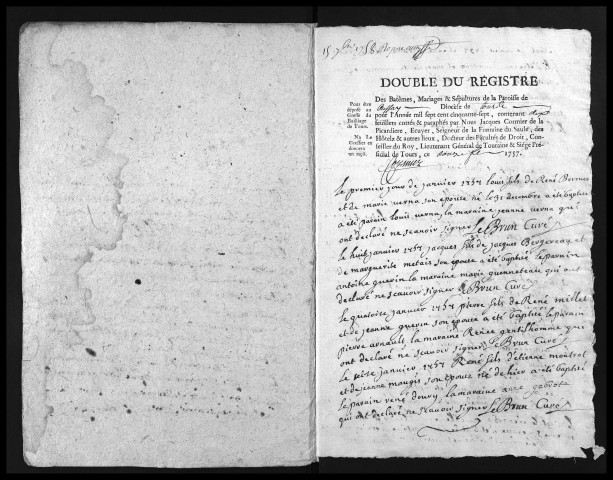 DOUBLE DU REGISTRE
Des Batêmes, Mariages & Sépultures de la Paroisse de
Diocése de
pour l'Année mil sept cent cinquante-sept, contenant
feuillets cottés & paraphés par Nous Jacques Cormier de la
Picardiere, Ecuyer, Seigneur de la Fontaine du Saule, des
Hôtels & autres lieux, Docteur des Facultés de Droit, Con-
seiller du Roy, Lieutenant Général de Touraine & Siége Pré-
sidial de Tours, ce 1757.
Pour être
déposé au
Greffe du
Bailliage
de Tours.
Cormier
le premier jour de janvier 1757 louis fils de René
et de marie verna son epouse né le 31 decembre a eté baptisé
a eté parain louis verna, la maraine jeanne verna qui
ont declaré ne scavoir signer Le Brun Curé
le huit janvier 1757 jacques fils de jacques Bergereau et
de marguerite metais son epouse a eté baptisé le parain
antoine guerin la maraine marie qui ont
declaré ne scavoir signer Le Brun Curé
le quatorse janvier 1757 pierre fils de René millet
et de jeanne guerin son epouse a eté baptisé le parain
pierre arnault la maraine Renée gentilhomme qui
ont declaré ne scavoir signer Le Brun Curé
le seise janvier 1757 René fils d'etienne montrot
et de jeanne maugis son epouse né de hier a eté baptisé
le parain rené doury, la maraine anne
qui ont declaré ne scavoir signer Le Brun Curé